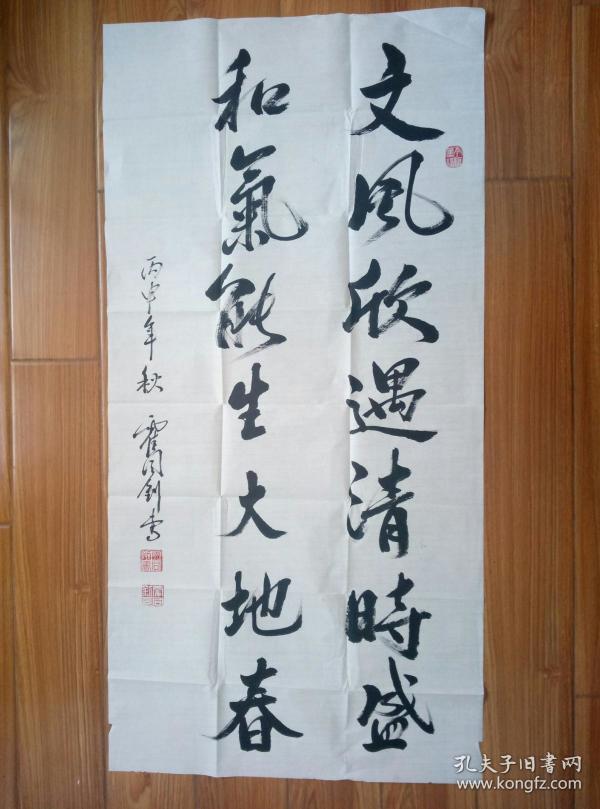 文风欣遇清時盛
和氣能生大地春
丙申年秋 霍同釗書
孔夫子旧書网
www.kongfz.com